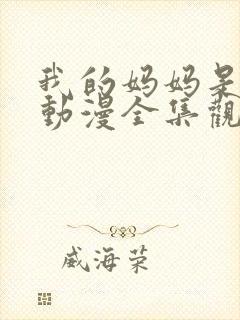 我的妈妈是
動漫全集觀
威海荣